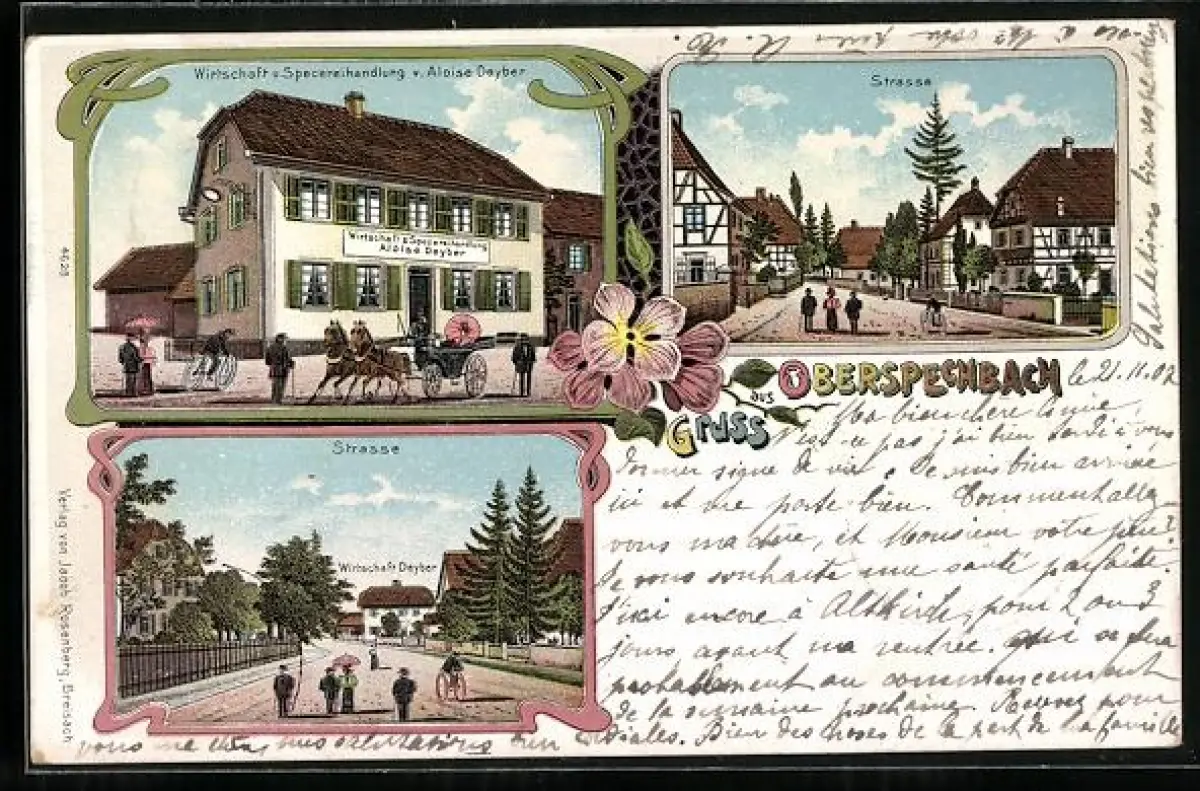 Wirtschaft u. Specereihandlung v. Aloise Deyber
Wirtschaft u. Specereihandlung
Aloise Deyber
Strasse
Gruss
aus
OBERSPECHBACH
Strasse
Wirtschaft Deyber
4629
Verlag von Jacob Rosenberg, Breisach
le 21.11.02
Ma bien chère amie.
N'est-ce pas j'ai bien tardé à vous
donner signe de vie. Je suis bien arrivée
ici et me porte bien. Comment allez-
vous ma chère, et Monsieur votre père?
Je vous souhaite une santé parfaite.
J'irai encore à Altkirch, pour 2 ou 3
jours avant ma rentrée. qui se fera
probablement au commencement
de la semaine prochaine. Recevez pour
vous ma chère, mes salutations bien cordiales. Bien des choses de la part de ma famille
Salutations bien